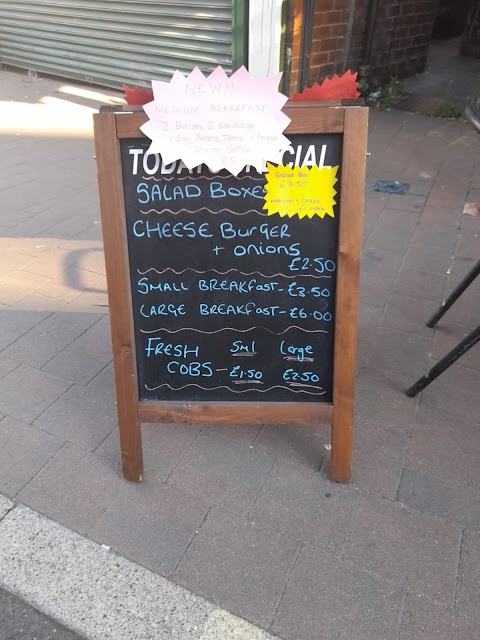 NEW!!
MEDIUM BREAKFAST
2 Bacon, 2 Sausage
1 Egg, Beans, Toms, 1 Toast
TODAY'S SPECIAL
SALAD BOXES
Salad Box
£3.50
CHEESE BURGER
+ onions
£2.50
SMALL BREAKFAST - £3.50
LARGE BREAKFAST - £6.00
FRESH Sml Large
COBS - £1.50 £2.50